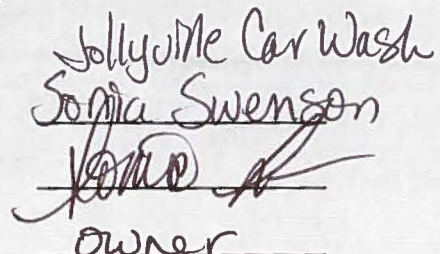 Jollyville Car Wash
Sonia Swenson
owner